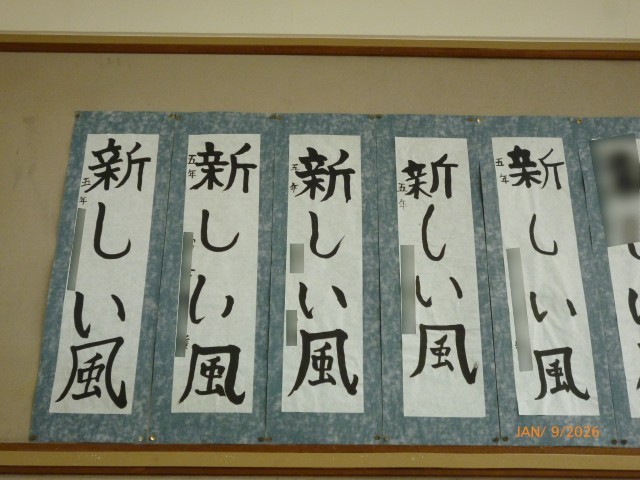 新しい風
五年
新しい風
五年
新しい風
五年
新しい風
五年
新しい風
五年
JAN/ 9/2026